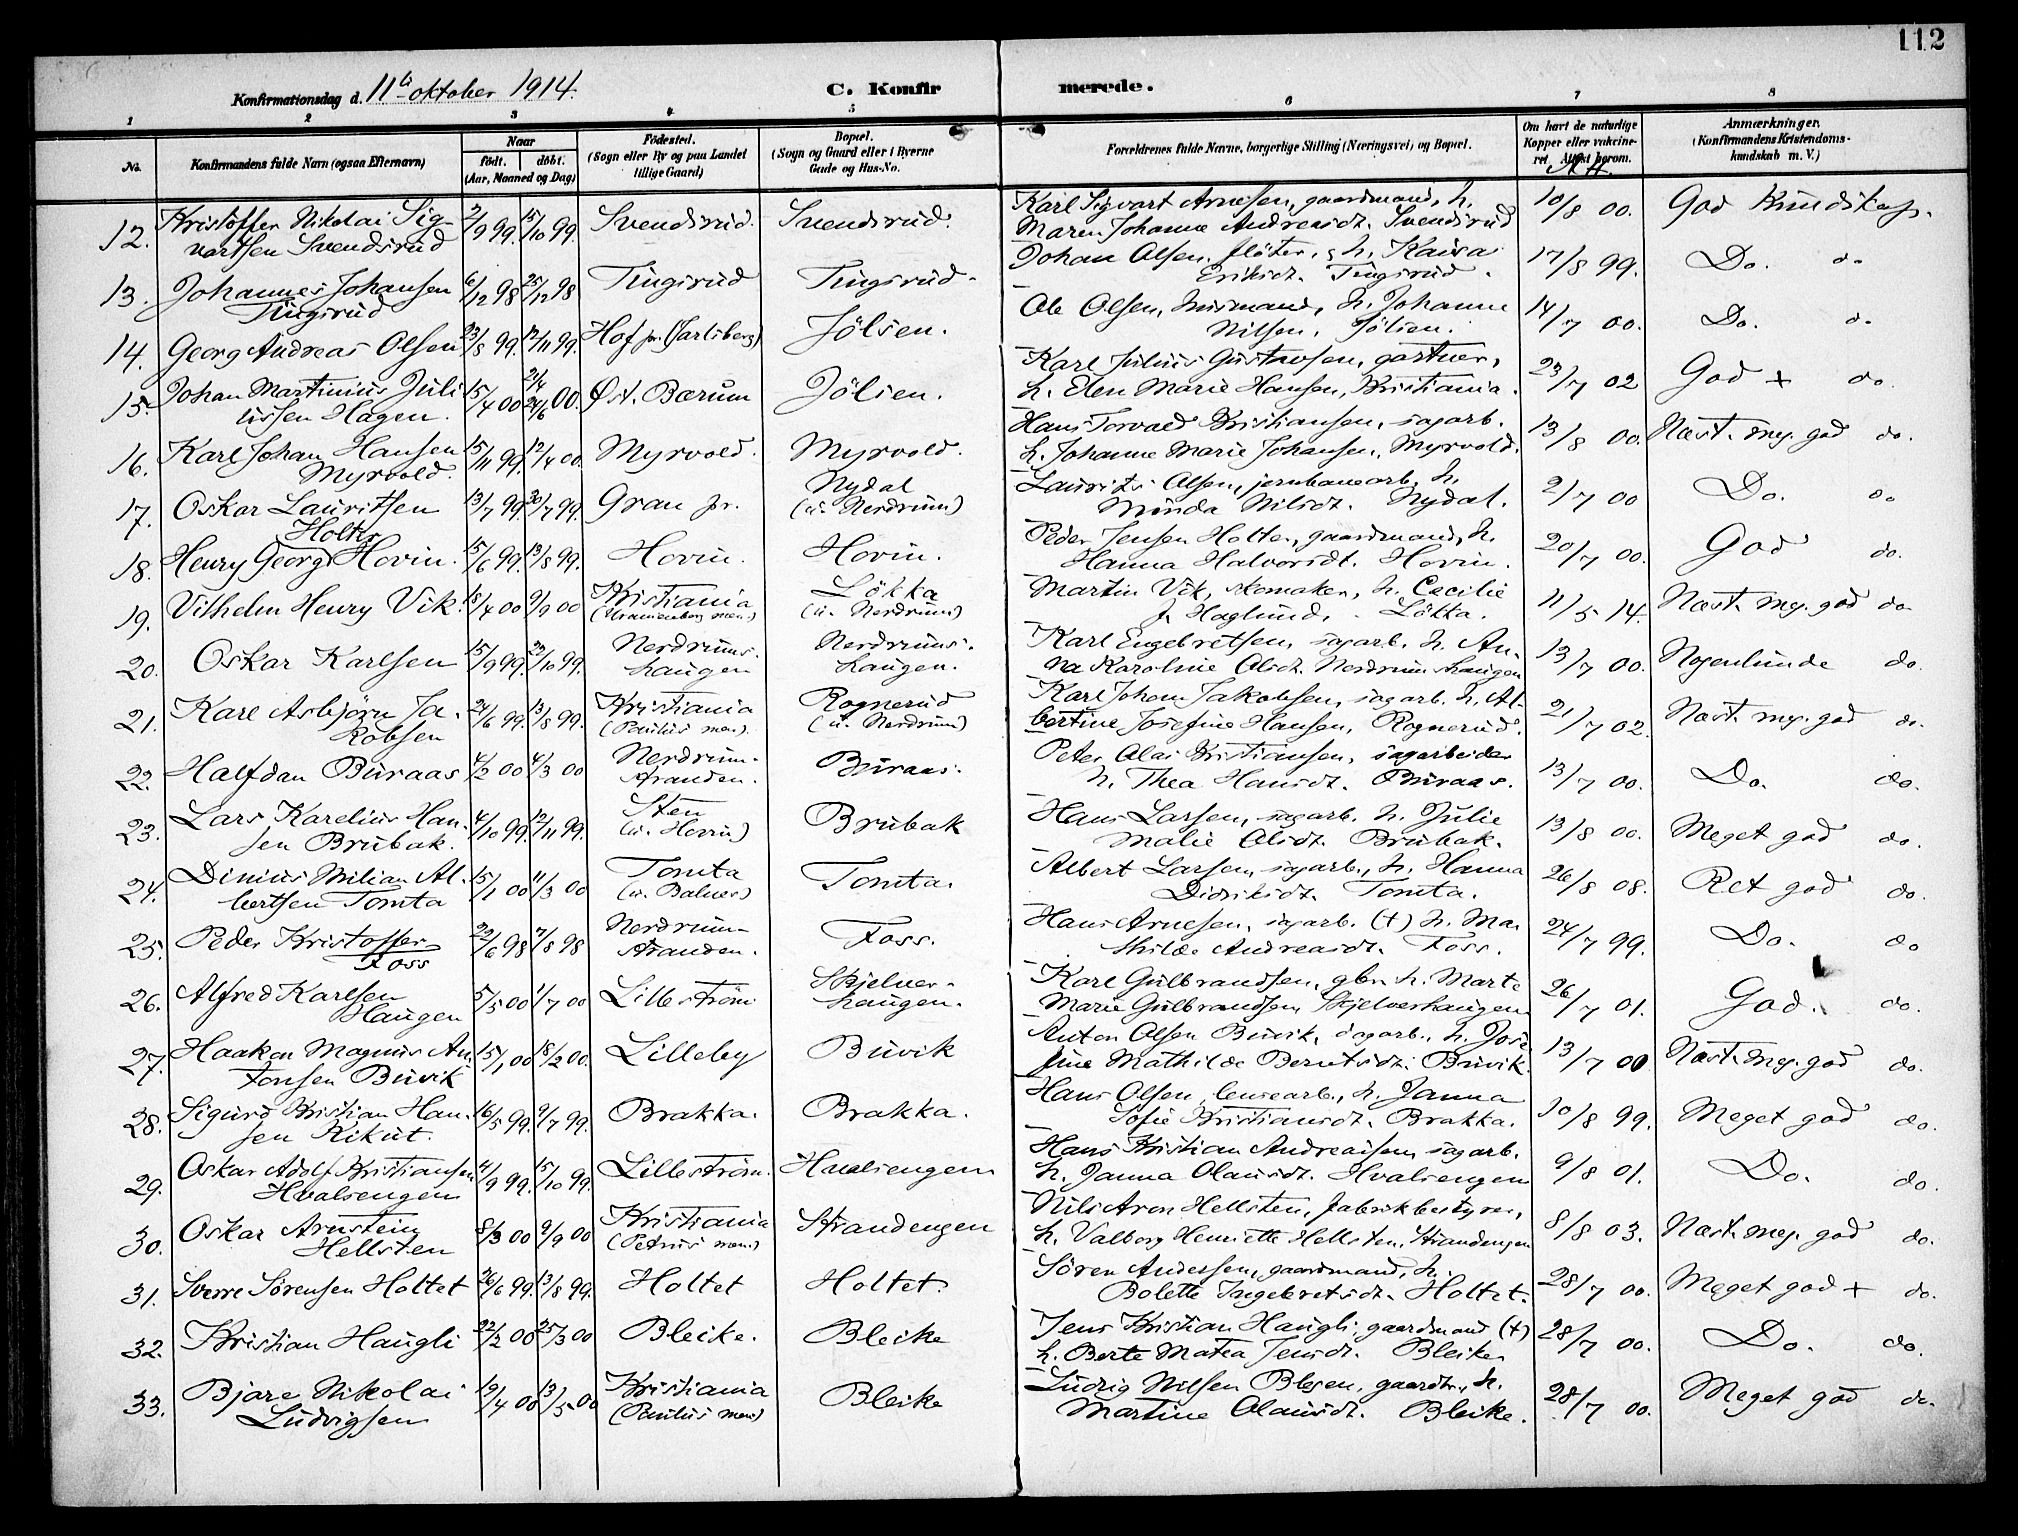 112
Konfirmationsdag d. 11te oktober 1914.
C. Konfirmerede.
1 2 3 4 5 6 7 8
No.
Konfirmandens fulde Navn (ogsaa Efternavn)
Naar
født. døbt.
(Aar, Maaned og Dag)
Fødested.
(Sogn eller By og paa Landet
tillige Gaard)
Bopæl.
(Sogn og Gaard eller i Byerne
Gade og Hus-No.
Forældrenes fulde Navne, borgerlige Stilling (Næringsvei) og Bopæl.
Om havt de naturlige
Kopper eller vakcine-
ret. Attest herom.
Anmærkninger.
(Konfirmandens Kristendoms-
kundskab m. V.)
12. Kristoffer Nikolai Sig- 2/9 99. 15/10 99. Svendsrud. Svendsrud. Karl Sigvart Arnesen, gaardmand, h. 10/8 00. God Kundskap.
vartsen Svendsrud Maren Johanne Andreasdt. Svendsrud
13. Johannes Johansen 6/12 98 25/12 98 Tingsrud Tingsrud. Johan Olsen, fløter, & h. Kaisa 17/8 99. Do. do
Tingsrud Eriksdt. Tingsrud.
14. Georg Andreas Olsen 23/8 99. 12/11 99. Hof pr. (Jarlsberg) Jölsen. Ole Olsen, husmand, h. Johanne 14/7 00. Do. do
Nilsen, Jölsen.
15. Johan Martinius Juli 15/4 00 21/4 24/6 00. Øst. Bærum Jölsen. Karl Julius Gustavsen, gartner, 23/7 02 God + do.
ussen Hagen. h. Elen Marie Hansen, Kristiania.
16. Karl Johan Hansen 15/11 99. 12/4 00. Myrvold. Myrvold. Hans Torvald Kristiansen, sagarb. 13/8 00. Næst. meg. god do.
Myrvold. h. Johanne Marie Johansen, Myrvold.
17. Oskar Lauritsen 13/7 99. 30/7 99. Gran pr. Nydal Laurits Olsen, jernbanearb. h. 2/7 00 Do. do
(u. Nerdrum) Minda Nilsdt. Nydal.
18. Henry Georg Holter Hovin. 15/6 99. 13/8 99. Hovin. Hovin. Peder Jensen Holter, gaardmand, h. 20/7 00. God do.
Hanna Halvorsdt. Hovin.
19. Vilhelm Henry Vik. 18/4 00 9/9 00 Kristiania Lökka Martin Vik, skomaker, h. Cecilie 11/5 14. Næst. meg. god do
(Uranienborg men.) (u. Nerdrum) J. Haglund. Lökka.
20. Oskar Karlsen 15/9 99. 29/10 99. Nerdrums- Nerdrums- Karl Engebretsen, sagarb. h. An- 13/7 00. Nogenlunde do.
haugen haugen. na Karoline Olsdt. Nerdrumshaugen
21. Karl Asbjörn Ja- 21/6 99. 13/8 99. Kristiania Rognerud Karl Johan Jakobsen, sagarb. h. Al- 21/7 02. Næst. meg. god do.
kobsen (Paulus men.) (u. Nerdrum) bertine Josefine Hansen, Rognerud.
22. Halfdan Buraas 4/2 00 4/3 00 Nerdrum- Buraas. Peter Olai Kristiansen, sagarbeider 13/7 00. Do. do.
stranden. h. Thea Hansdt. Buraas.
23. Lars Karelius Han- 4/10 99. 12/11 99. Sten Brubak Hans Larsen, sagarb. h. Julie 13/8 00. Meget god do.
sen Brubak. (u. Hovin) Malie Olsdt. Brubak.
24. Dinius Milian Al- 15/1 00 11/3 00 Tomta Tomta. Albert Larsen, sagarb., h. Hanna 26/8 08. Ret god do.
bertsen Tomta (u. Balner) Didriksdt. Tomta.
25. Peder Kristoffer 22/6 98 7/8 98 Nerdrum- Foss. Hans Arnesen, sagarb. (+) h. Ma- 24/7 99. Do. do
Foss stranden. thilde Andreasdt. Foss.
26. Alfred Karlsen 5/5 00 1/7 00 Lilleström Skjelver- Karl Gulbrandsen, gbr. h. Marte 26/7 01. God. do.
Haugen haugen. Marie Gulbrandsen, Skjelverhaugen
27. Haakon Magnus An- 15/1 00 18/2 00. Lilleby Buvik Anton Olsen Buvik, sagarb., h. Jose- 13/7 00 Næst. meg. god do.
tonsen Buvik fine Mathilde Berntsdt. Buvik.
28. Sigurd Kristian Han- 16/5 99. 9/7 99. Brakka. Brakka. Hans Olsen, lensearb., h. Janna 10/8 99. Meget god do.
sen Kikut. Sofie Kristiansdt. Brakka.
29. Oskar Adolf Kristiansen 4/9 99. 15/10 99. Lilleström. Hvalsengen Hans Kristian Andreassen, sagarb. 9/8 01. Do. do.
Hvalsengen h. Janna Olausdt. Hvalsengen
30. Oskar Arnstein 8/3 00 9/9 00 Kristiania Strandengen Nils Aron Hellsten, fabrikbestyrer, 8/8 03. Næst. meg. god do.
Hellsten (Petrus men.) h. Valborg Henriette Hellsten, Strandengen
31. Sverre Sørensen Holtet 26/6 99. 13/8 99. Holtet Holtet. Sören Andersen, gaardmand, h. 28/7 00. Meget god + do.
Bolette Ingebretsdt. Holtet.
32. Kristian Haugli 22/2 00 25/3 00 Bleike. Bleike Jens Kristian Haugli, gaardmand (+) 28/7 00. Do. do.
h. Berte Matea Jensdt. Bleiker
33. Bjare Nikolai 19/4 00 13/5 00 Kristiania Bleike Ludvig Nilsen Blegen, gaardbr., h. 28/7 00. Meget god do.
Ludvigsen (Paulus men.) Martine Olausdt. Bleike.